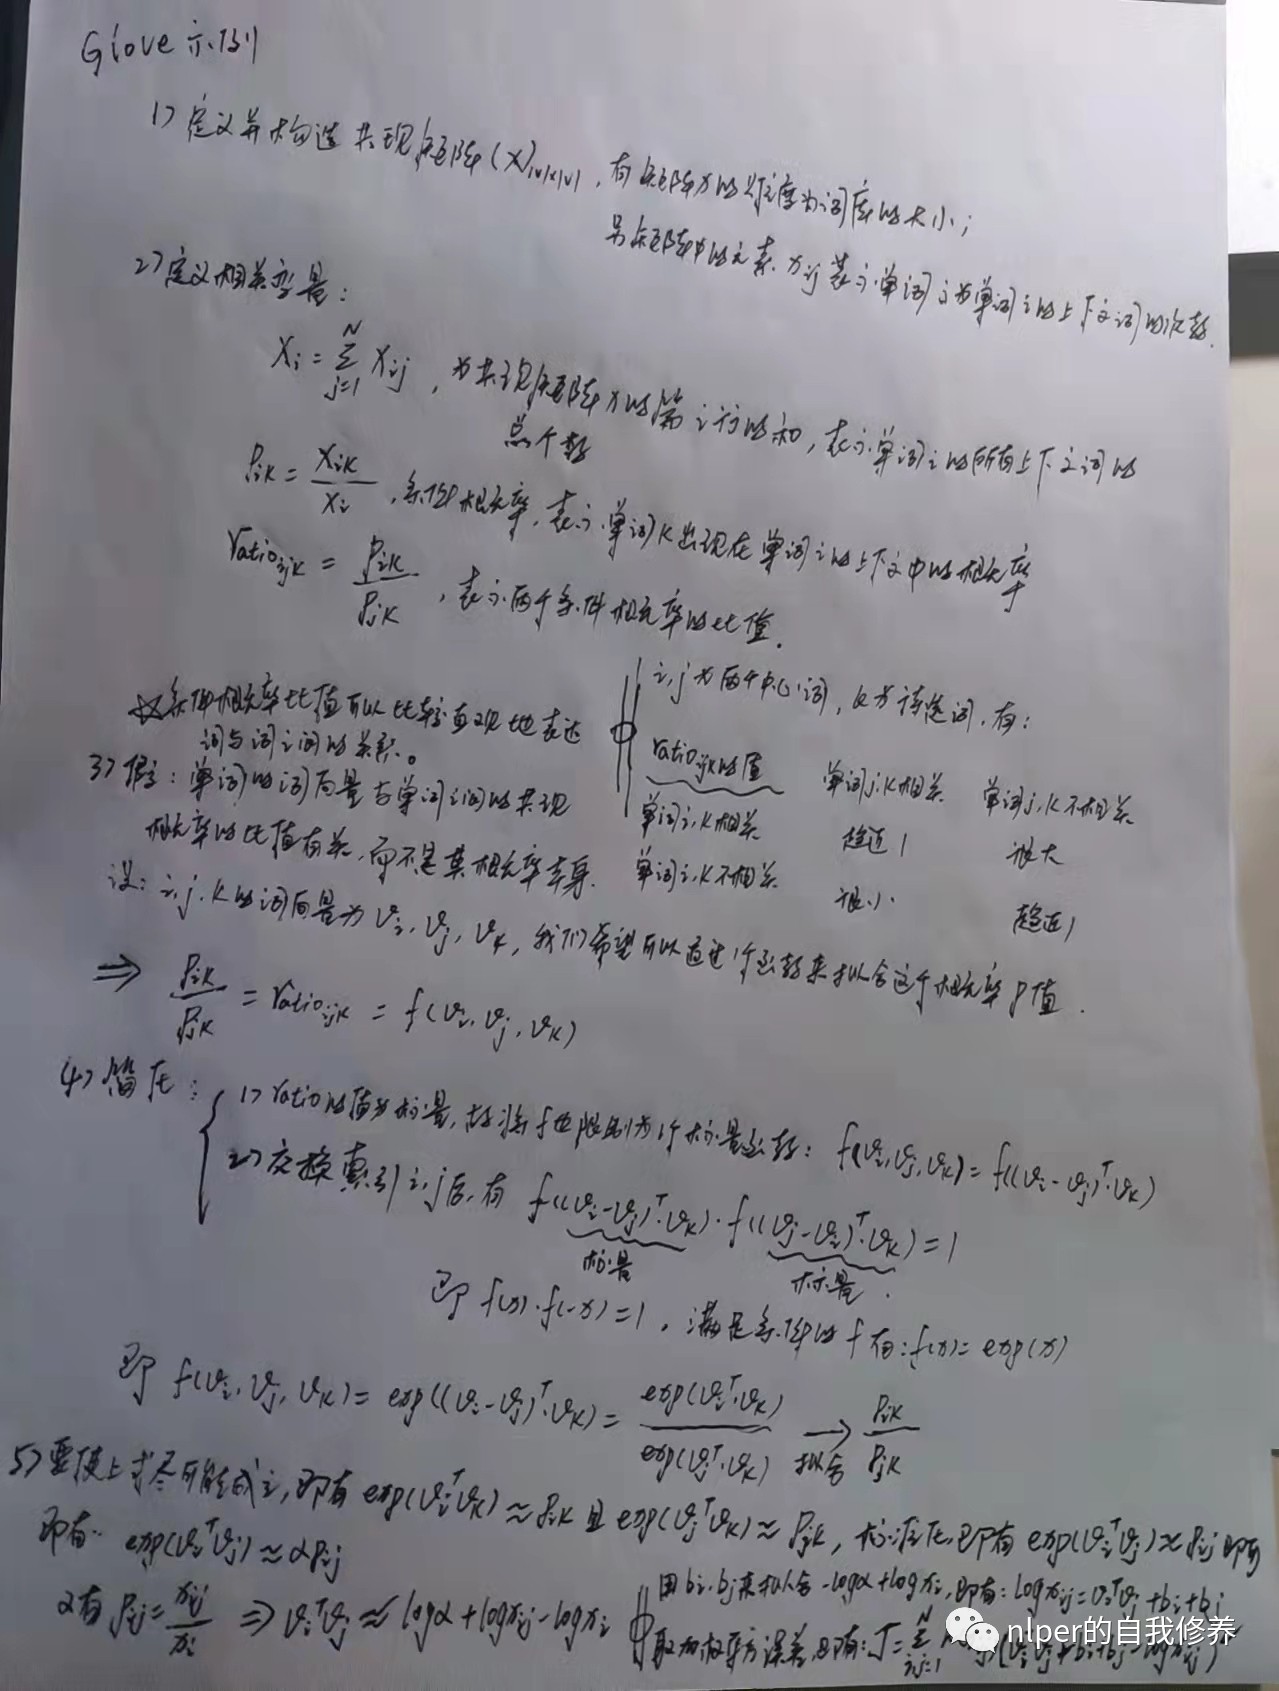 Glove 示例
1> 定义并构造共现矩阵(X)|v|x|v|，有矩阵X的维度为词库的大小；
另矩阵中的元素Xij表示单词j为单词i的上下文词的次数.
2> 定义相关变量：
Xi = Σ_{j=1}^{N} Xij，为共现矩阵X的第i行的和，表示单词i的所有上下文词的
总个数
Pik = Xik / Xi，条件概率，表示单词k出现在单词i的上下文中的概率
ratioijk = Pik / Pjk，表示两个条件概率的比值.
☆条件概率比值可以比较直观地表达
词与词之间的关系。
i,j为两个中心词，k为待选词，有：
ratioijk的值 单词j,k相关 单词j,k不相关
单词i,k相关 趋近1 很大
单词i,k不相关 很小 趋近1
3> 假定：单词的词向量与单词之间的共现
概率的比值有关，而不是其概率本身.
设：i,j,k的词向量为vi,vj,vk，我们希望可以通过1个函数来拟合这个概率p值.
⇒ Pik / Pjk = ratioijk = f(vi,vj,vk)
4> 简化：
1> ratio的值为标量，故将f也限制为1个标量函数：f(vi,vj,vk)=f((vi-vj)^T·vk)
2> 交换索引i,j后，有 f((vi-vj)^T·vk)·f((vj-vi)^T·vk)=1
标量 标量.
即 f(x)·f(-x)=1，满足条件的f有：f(x)=exp(x)
即 f(vi,vj,vk)=exp((vi-vj)^T·vk)= exp(vi^T·vk) / exp(vj^T·vk) →拟合 Pik / Pjk
5> 要使上式尽可能成立，即有 exp(vi^T vk)≈Pik 且 exp(vj^T vk)≈Pjk，标准化，即有 exp(vi^T vj)≈Pij 即可
即有 exp(vi^T vj)≈αPij
又有 Pij = xij / xi ⇒ vi^T vj≈logα+logxij-logxi
用bi,bj来拟合 -logα+logxi，即有：logxij=vi^T vj+bi+bj
取加权平方误差，即有：J=Σ_{i,j=1}^{N}
nlper的自我修养